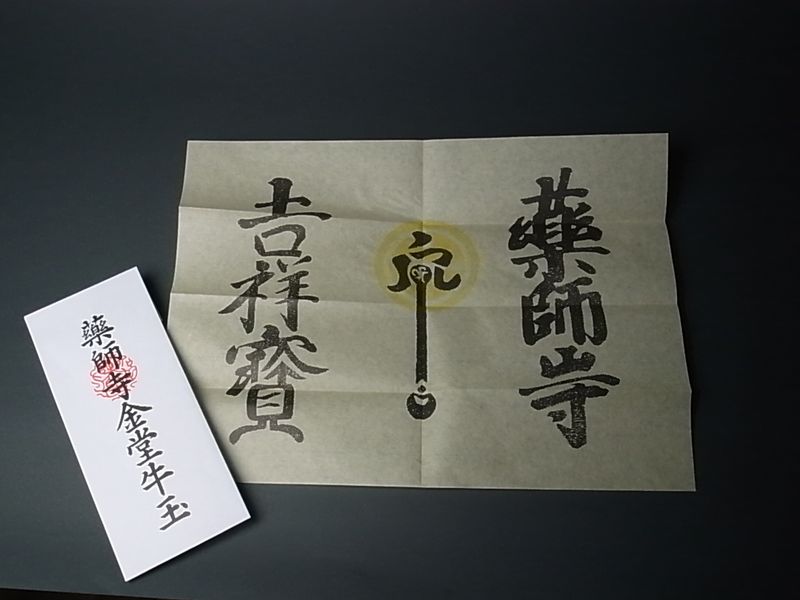 藥師寺
吉祥寳
藥師寺金堂牛玉